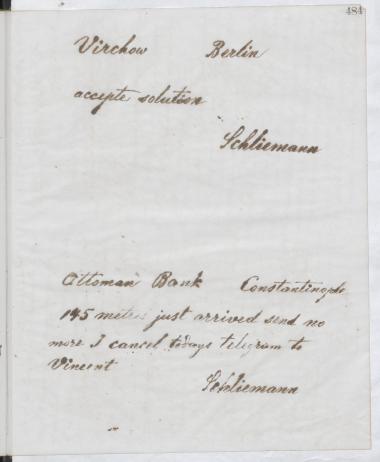 484
Virchow Berlin
accepte solution
Schliemann
Ottoman Bank Constantinople
145 metres just arrived send no
more I cancel todays telegram to
Vincent
Schliemann